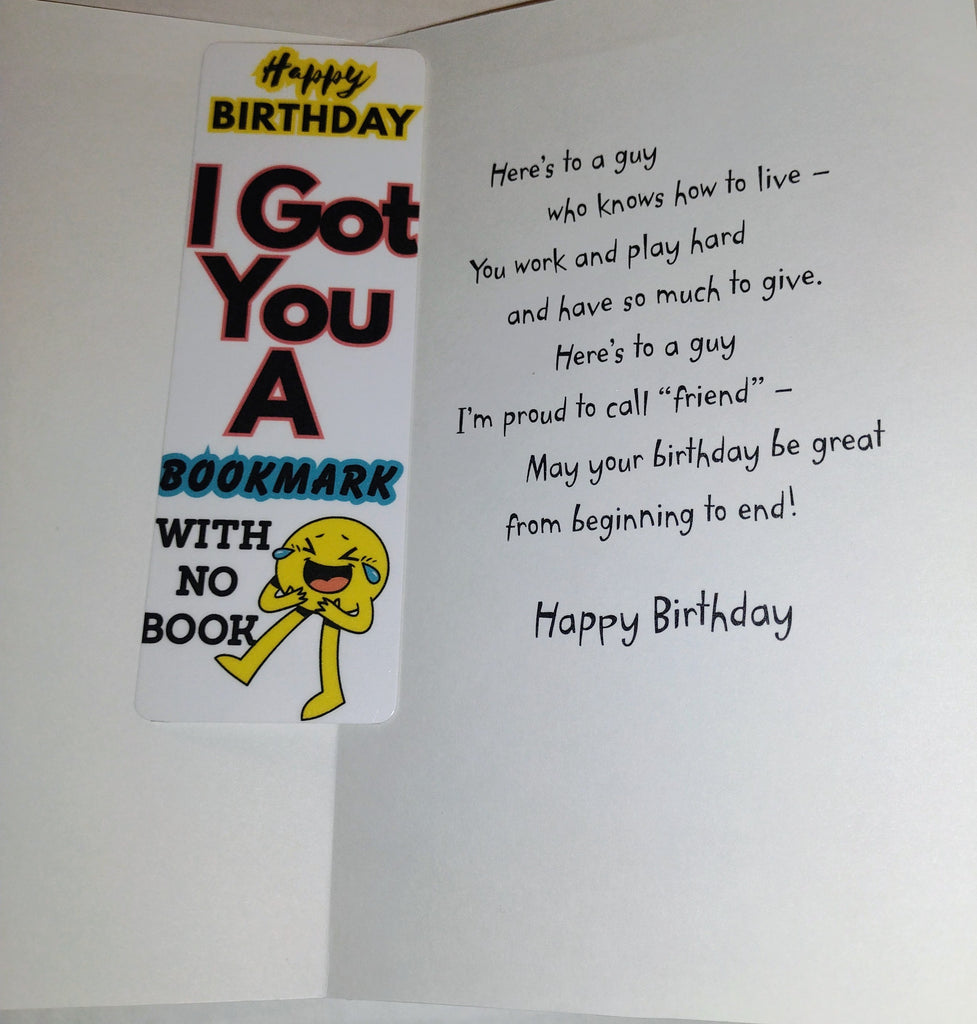 Happy
BIRTHDAY
I Got
You
A
BOOKMARK
WITH
NO
BOOK
Here's to a guy
who knows how to live –
You work and play hard
and have so much to give.
Here's to a guy
I'm proud to call “friend” –
May your birthday be great
from beginning to end!
Happy Birthday